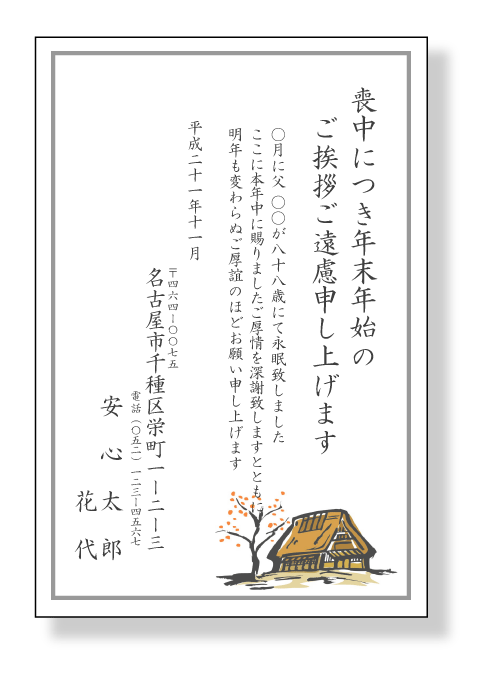 喪中につき年末年始の
ご挨拶ご遠慮申し上げます
〇月に父 〇〇が八十八歳にて永眠致しました
ここに本年中に賜りましたご厚情を深謝致しますとともに
明年も変わらぬご厚誼のほどお願い申し上げます
平成二十一年十一月
〒四六四ー〇〇七五
名古屋市千種区栄町一ー二ー三
電話（〇五二）一二三ー四五六七
安心太郎
花代